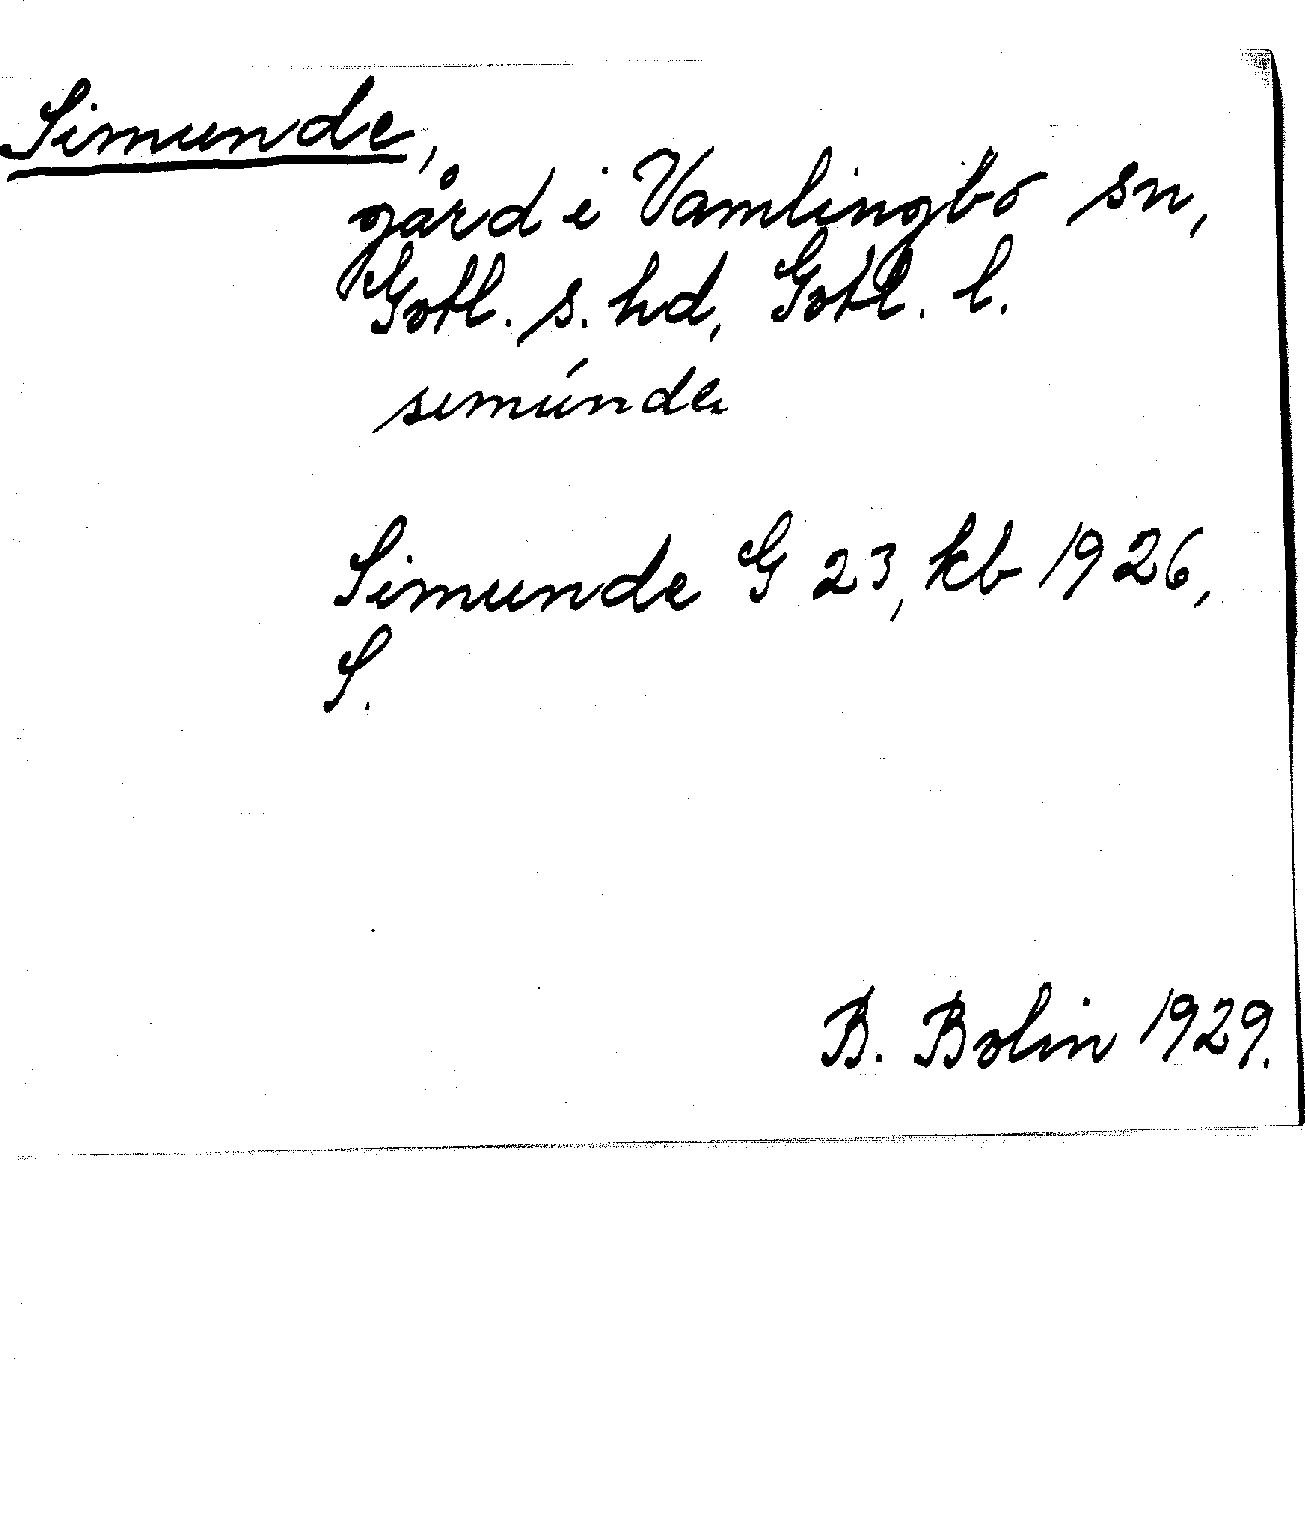 Simunde,
gård i Vamlingbo sn,
Gotl. s. hd, Gotl. l.
simúnde
Simunde G 23, kb 1926,
S.
B. Bolin 1929.